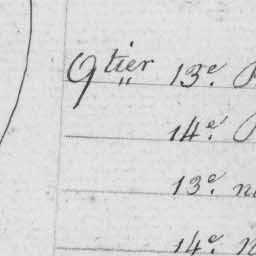 Qtier 13e.
14e.
13e.
14e.